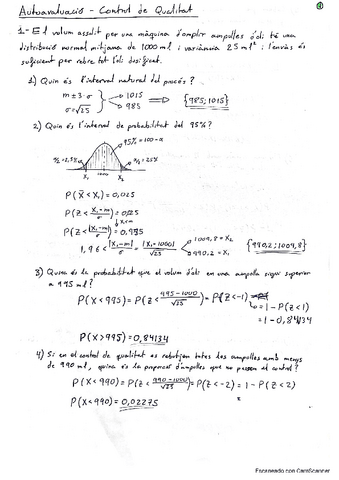 Autoavaluació - Control de Qualitat
1.- El volum assolit per una màquina d'omplir ampolles d'oli té una
distribució normal mitjana de 1000 ml i variància 25 ml² i l'envàs és
suficient per rebre tot l'oli dosificat.
1) Quin és l'interval natural del procés?
m ± 3·σ
σ = √25
1015
985
{985; 1015}
2) Quin és l'interval de probabilitat del 95%?
95% = 100 - α
α/2 = 2,5%
α/2 = 2,5%
X₁ 1000 X₂
P(X < X₁) = 0,025
P(Z < X₁-m/σ) = 0,025
P(Z < |X₁-m|/σ) = 0,975
1,96 < |X₁-m|/σ = |X₁-1000|/√25
1009,8 = X₂
990,2 = X₁
{990,2; 1009,8}
3) Quina és la probabilitat que el volum d'oli en una ampolla sigui superior
a 995 ml?
P(X < 995) = P(Z < 995-1000/√25) = P(Z < -1)
= 1 - P(Z < 1)
= 1 - 0,84134
P(X > 995) = 0,84134
4) Si en el control de qualitat es rebutjen totes les ampolles amb menys
de 990 ml, quina és la proporció d'ampolles que no passen el control?
P(X < 990) = P(Z < 990-1000/√25) = P(Z < -2) = 1 - P(Z < 2)
P(X < 990) = 0,02275
Escaneado con CamScanner